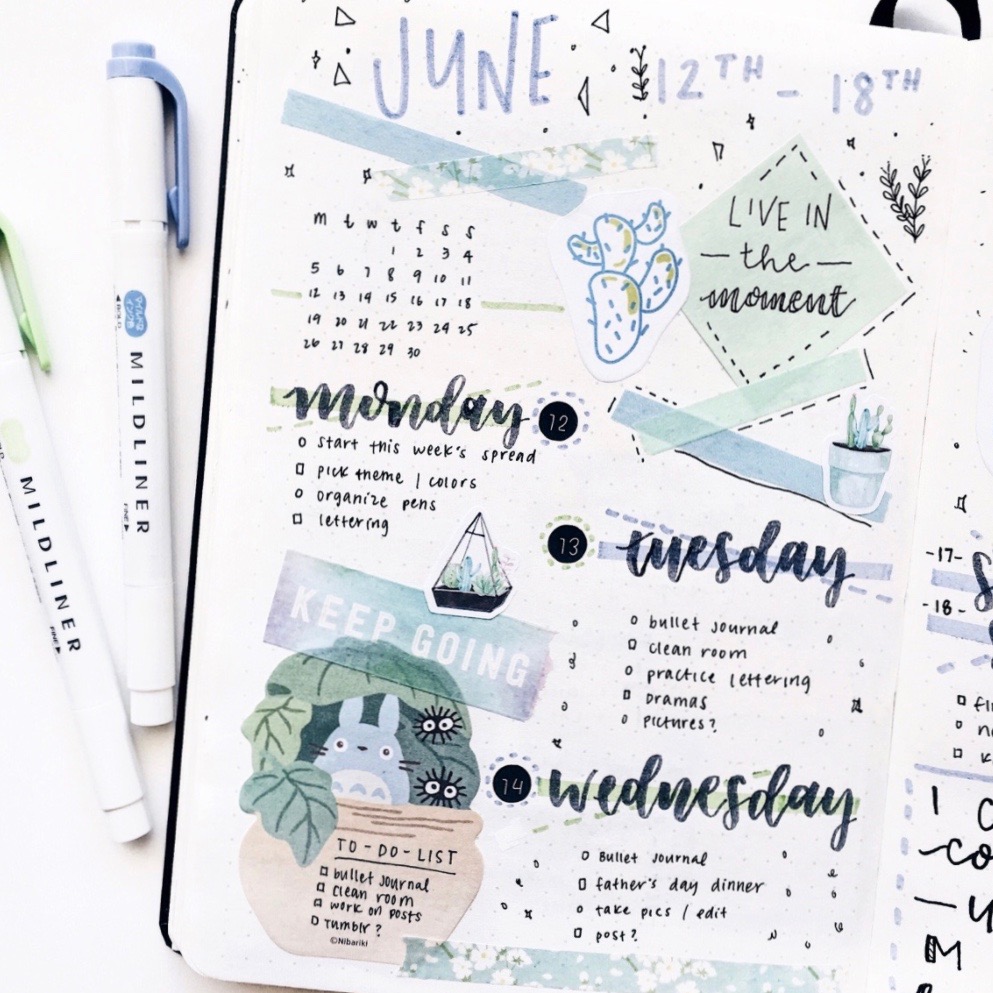 JUNE 12TH - 18TH
m t w t f s s
1 2 3 4
5 6 7 8 9 10 11
12 13 14 15 16 17 18
19 20 21 22 23 24 25
26 27 28 29 30
LIVE IN
-the-
moment
monday 12
start this week's spread
pick theme / colors
organize pens
lettering
13 tuesday
bullet journal
clean room
practice lettering
Dramas
pictures?
KEEP GOING
14 wednesday
Bullet Journal
father's day dinner
take pics / edit
post?
TO-DO-LIST
bullet Journal
clean room
work on posts
Tumblr?
©Nibariki
-17-
-18-
MILDLINER
BOLD
FINE
MILDLINER
FINE